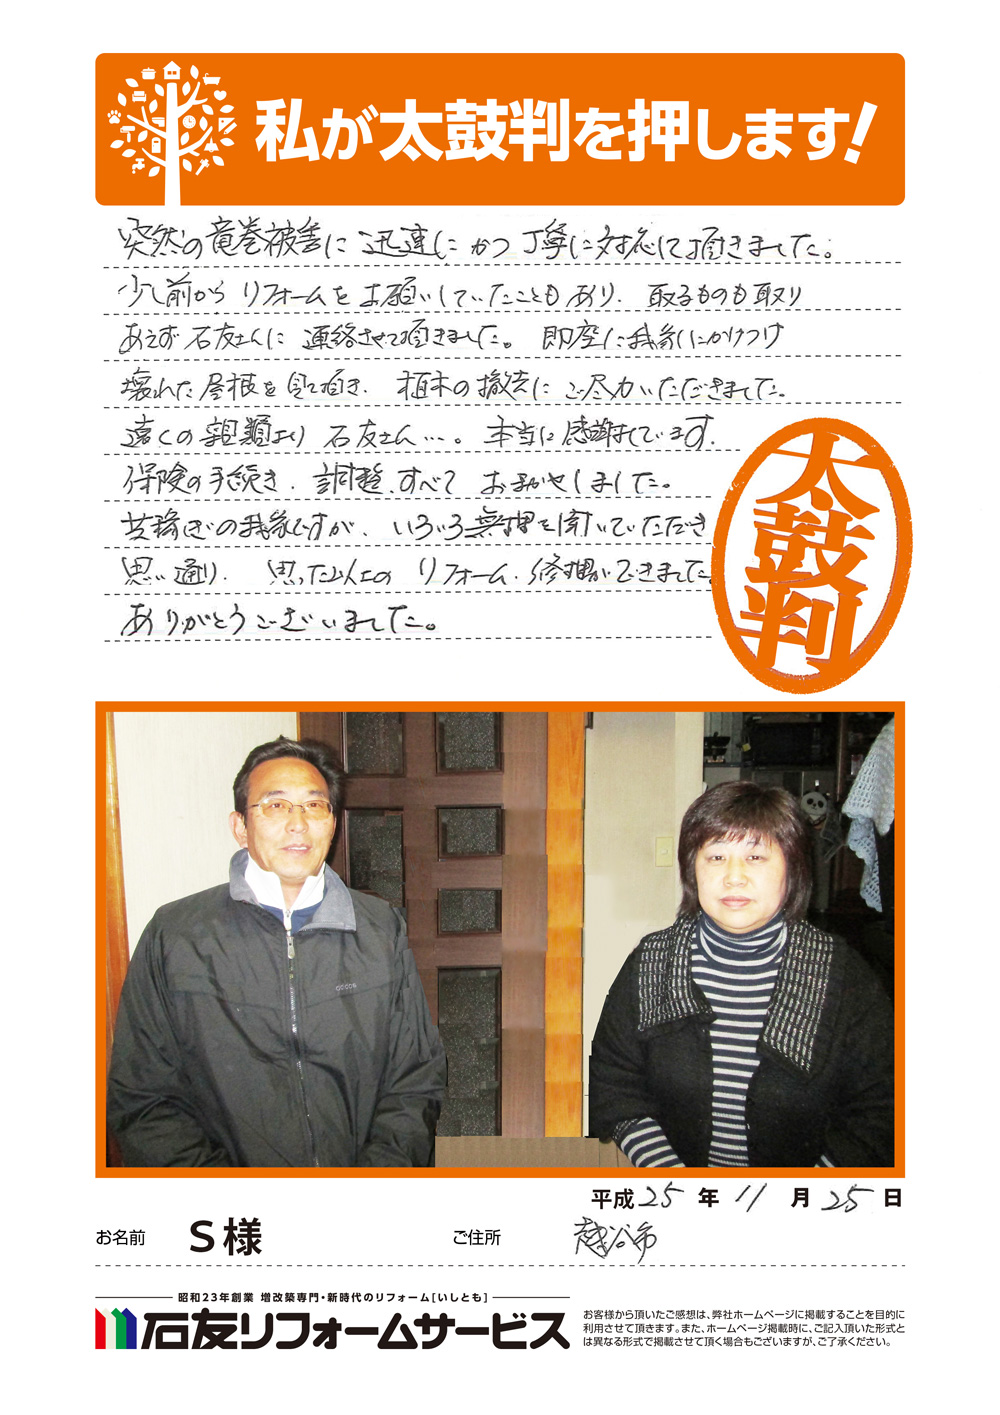 私が太鼓判を押します!
突然の竜巻被害に迅速にかつ丁寧に対応して頂きました。
少し前からリフォームをお願いしていたこともあり、取るものも取り
あえず石友さんに連絡させて頂きました。即座に我家にかけつけ
壊れた屋根を見て頂き、植木の撤去にご尽力いただきました。
遠くの親類より石友さん…。本当に感謝しています。
保険の手続き、調整、すべておまかせしました。
共稼ぎの我家ですが、いろいろ無理を聞いていただき
思い通り、思った以上のリフォーム、修理ができました。
ありがとうございました。
太鼓判
平成25年11月25日
お名前 S様 ご住所 越谷市
昭和23年創業 増改築専門・新時代のリフォーム[いしとも]
石友リフォームサービス
お客様から頂いたご感想は、弊社ホームページに掲載することを目的に
利用させて頂きます。また、ホームページ掲載時に、ご記入頂いた形式と
は異なる形式で掲載させて頂く場合もございますが、ご了承ください。